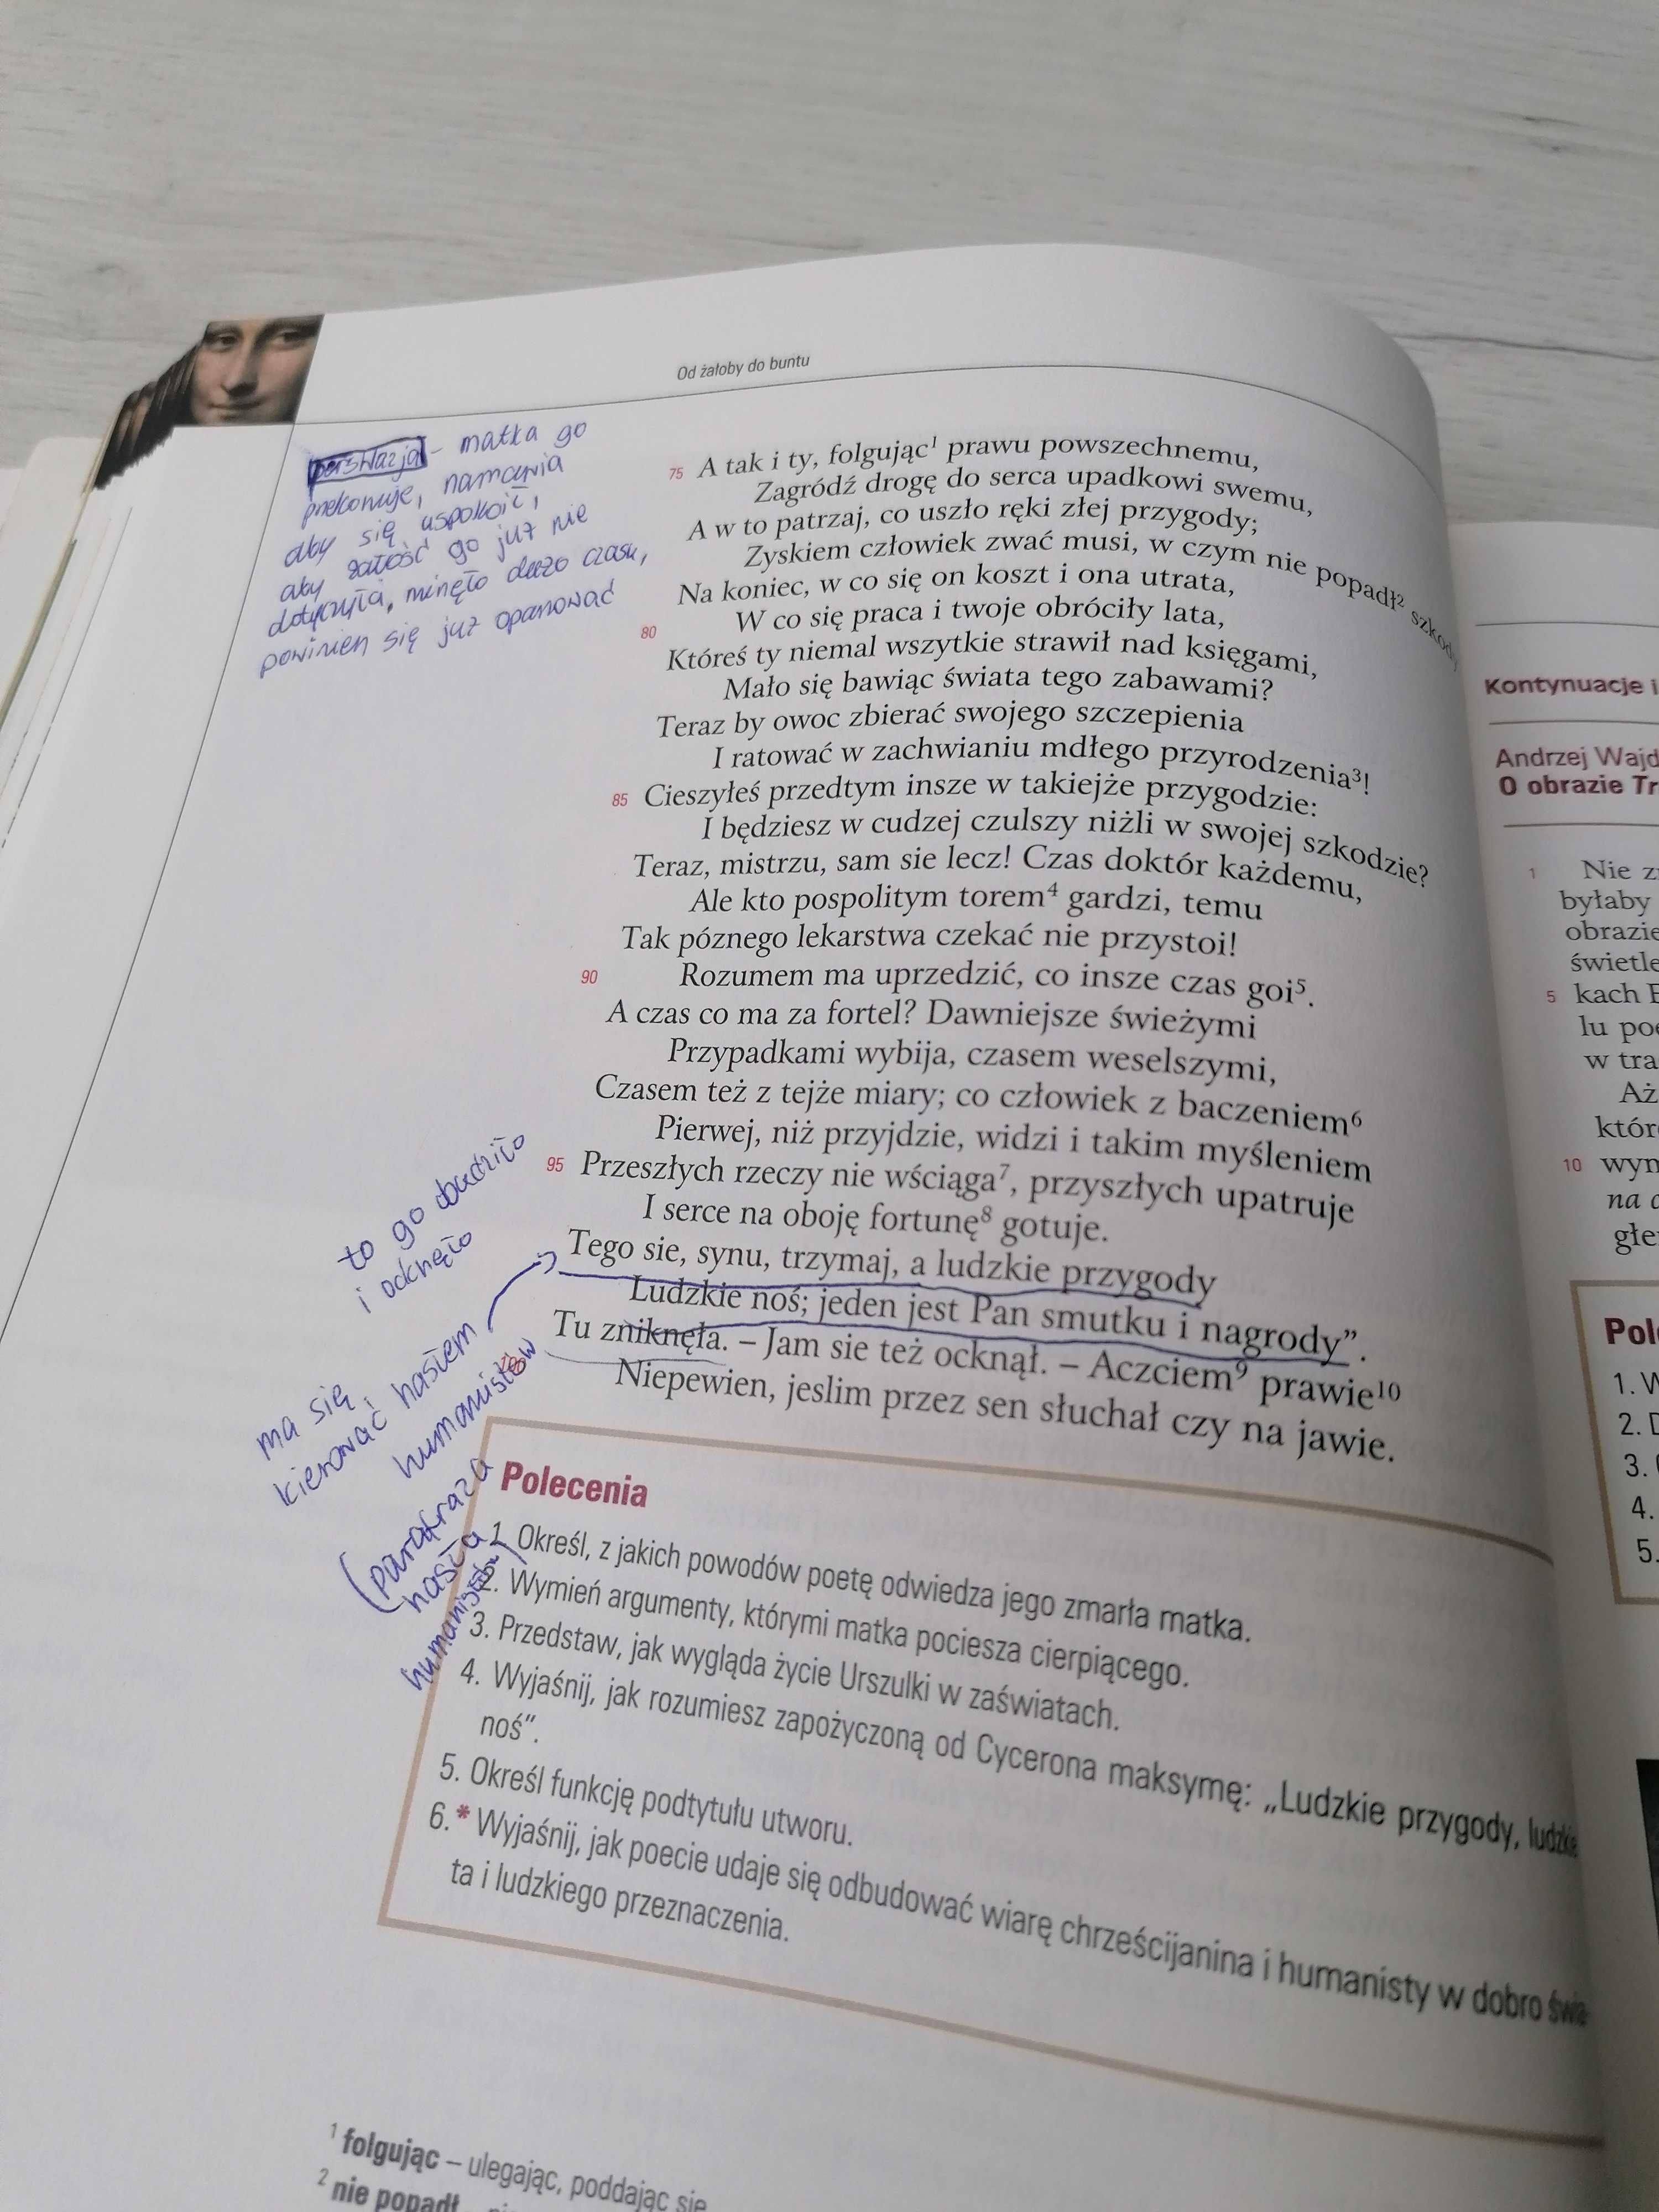 Od żałoby do buntu
perswazja - matka go
przekonuje, namawia
aby się uspokoić,
aby żałość go już nie
dotyczyła, minęło dużo czasu,
powinien się już opanować
75 A tak i ty, folgując¹ prawu powszechnemu,
Zagródź drogę do serca upadkowi swemu,
A w to patrzaj, co uszło ręki złej przygody;
Zyskiem człowiek zwać musi, w czym nie popadł² szkody
Na koniec, w co się on koszt i ona utrata,
80 W co się praca i twoje obróciły lata,
Któreś ty niemal wszytkie strawił nad księgami,
Mało się bawiąc świata tego zabawami?
Teraz by owoc zbierać swojego szczepienia
I ratować w zachwianiu mdłego przyrodzenia³!
85 Cieszyłeś przedtym insze w takiejże przygodzie:
I będziesz w cudzej czulszy niżli w swojej szkodzie?
Teraz, mistrzu, sam sie lecz! Czas doktór każdemu,
Ale kto pospolitym torem⁴ gardzi, temu
Tak póznego lekarstwa czekać nie przystoi!
90 Rozumem ma uprzedzić, co insze czas goi⁵.
A czas co ma za fortel? Dawniejsze świeżymi
Przypadkami wybija, czasem weselszymi,
Czasem też z tejże miary; co człowiek z baczeniem⁶
Pierwej, niż przyjdzie, widzi i takim myśleniem
95 Przeszłych rzeczy nie wściąga⁷, przyszłych upatruje
I serce na oboję fortunę⁸ gotuje.
Tego sie, synu, trzymaj, a ludzkie przygody
Ludzkie noś; jeden jest Pan smutku i nagrody”.
Tu zniknęła. – Jam sie też ocknął. – Aczciem⁹ prawie¹⁰
Niepewien, jeslim przez sen słuchał czy na jawie.
to go obudziło
i ocknęło
ma się
kierować hasłem
humanistów
(parafraza
hasła
humanistów)
Polecenia
1. Określ, z jakich powodów poetę odwiedza jego zmarła matka.
2. Wymień argumenty, którymi matka pociesza cierpiącego.
3. Przedstaw, jak wygląda życie Urszulki w zaświatach.
4. Wyjaśnij, jak rozumiesz zapożyczoną od Cycerona maksymę: „Ludzkie przygody, ludzkie
noś”.
5. Określ funkcję podtytułu utworu.
6.* Wyjaśnij, jak poecie udaje się odbudować wiarę chrześcijanina i humanisty w dobro świa-
ta i ludzkiego przeznaczenia.
¹ folgując – ulegając, poddając się
² nie popadł
Kontynuacje i
Andrzej Wajd
O obrazie Tr
1 Nie z
byłaby
obrazie
świetle
5 kach
lu po
w tra
Aż
któr
10 wyn
na
głe
Pol
1. W
2. D
3.
4.
5.